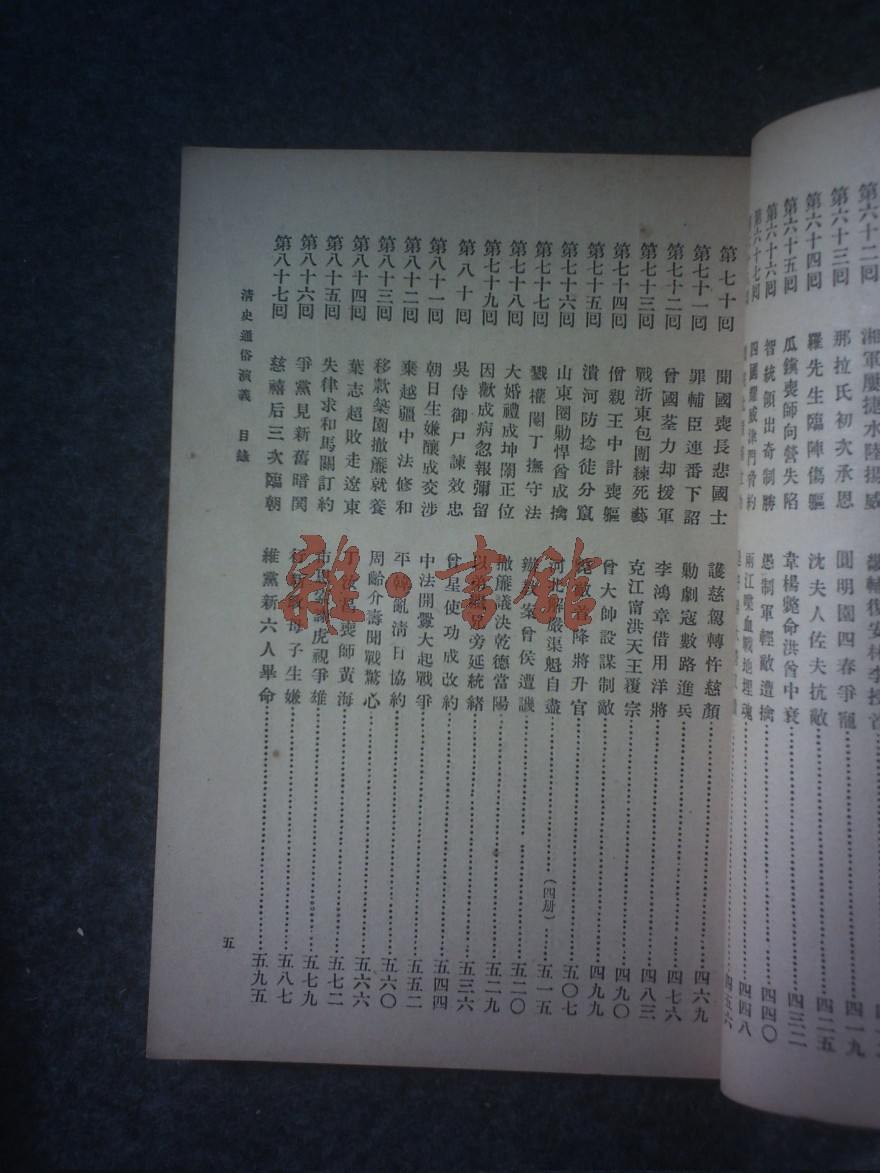 第六十二回 湘軍屢捷水陸揚威
第六十三回 那拉氏初次承恩 圓明園四春爭寵 四一九
第六十四回 羅先生臨陣傷軀 沈夫人佐夫抗敵 四二五
第六十五回 瓜鎮喪師向營失陷 韋楊斃命洪曾中衰 四三二
第六十六回 智統領出奇制勝 愚制軍輕敵遭擒 四四〇
第六十七回 四國耀威津門脅約 兩江喋血戰地埋魂 四四八
四五六
第七十回 聞國喪長悲國士 護慈駕轉忤慈顏 四六九
第七十一回 罪輔臣連番下詔 剿劇寇數路進兵 四七六
第七十二回 曾國荃力却援軍 李鴻章借用洋將 四八三
第七十三回 戰浙東包團練死藝 克江甯洪天王覆宗 四九〇
第七十四回 僧親王中計喪軀 曾大帥設謀制敵 四九九
第七十五回 潰河防捻徒分竄 降將升官 五〇七
第七十六回 山東圈剿悍酋成擒 河北解嚴渠魁自盡 (四册) 五一五
第七十七回 戮權閹丁撫守法 案曾侯遭譏 五二〇
第七十八回 大婚禮成坤闈正位 撤簾議決乾德當陽 五二九
第七十九回 因歡成病忽報彌留 以弟繼兄旁延統緒 五三六
第八十回 吳侍御尸諫效忠 曾星使功成改約 五四四
第八十一回 朝日生嫌釀成交涉 中法開釁大起戰爭 五五二
第八十二回 棄越疆中法修和 平韓亂清日協約 五六〇
第八十三回 移款築園撤簾就養 周齡介壽聞戰驚心 五六六
第八十四回 葉志超敗走遼東 丁汝昌喪師黃海 五七二
第八十五回 失律求和馬關訂約 市恩 虎視爭雄 五七九
第八十六回 爭黨見新舊暗鬨 行新政母子生嫌 五八七
第八十七回 慈禧后三次臨朝 維黨新六人畢命 五九五
清史通俗演義 目錄
五
雜·書館